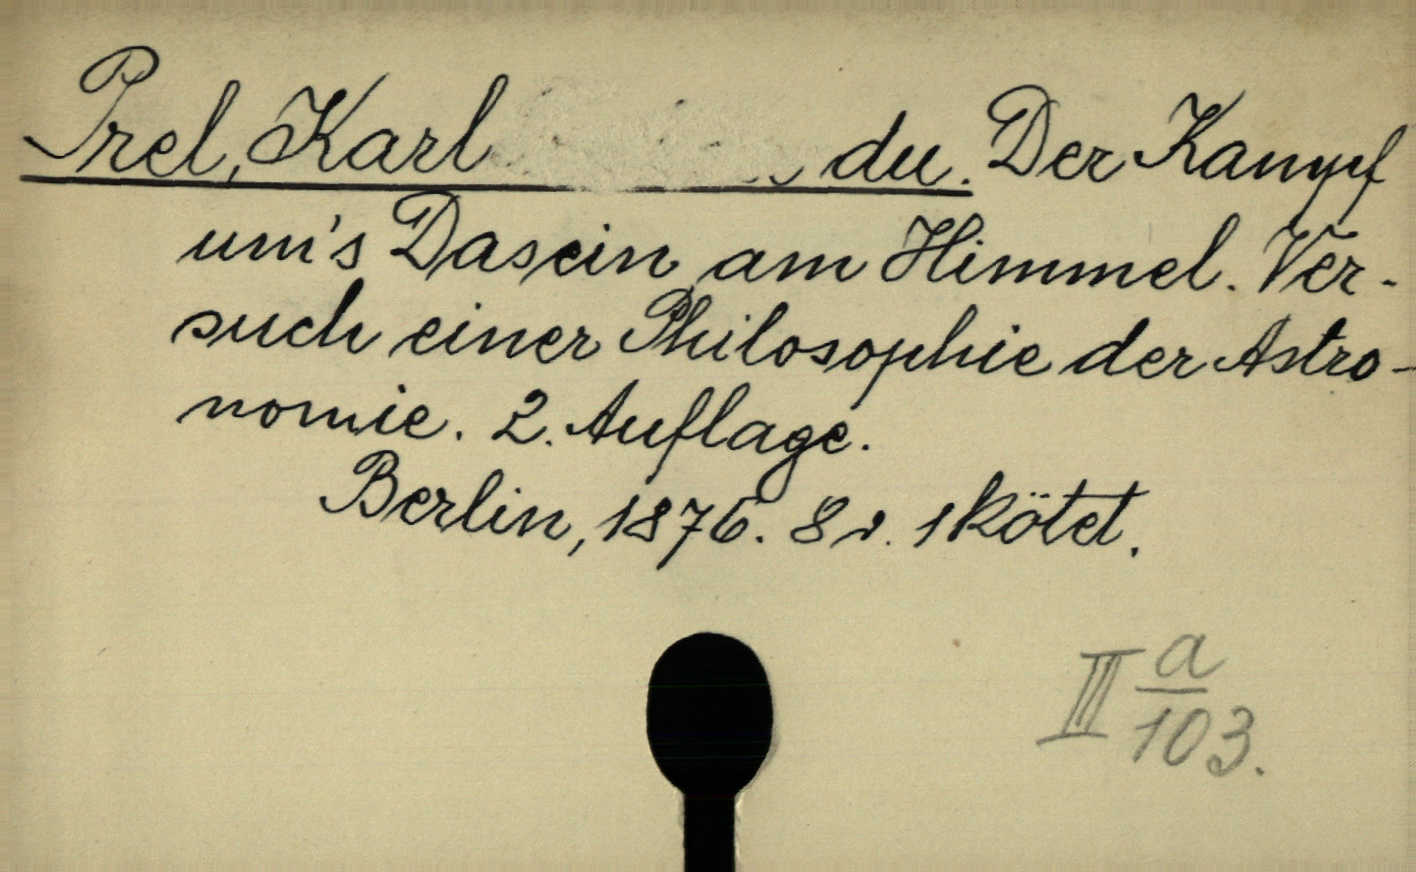 Prel, Karl du. Der Kampf
um's Dasein am Himmel. Ver-
such einer Philosophie der Astro-
nomie. 2. Auflage.
Berlin, 1876. 8r. 1 kötet.
III a/103.